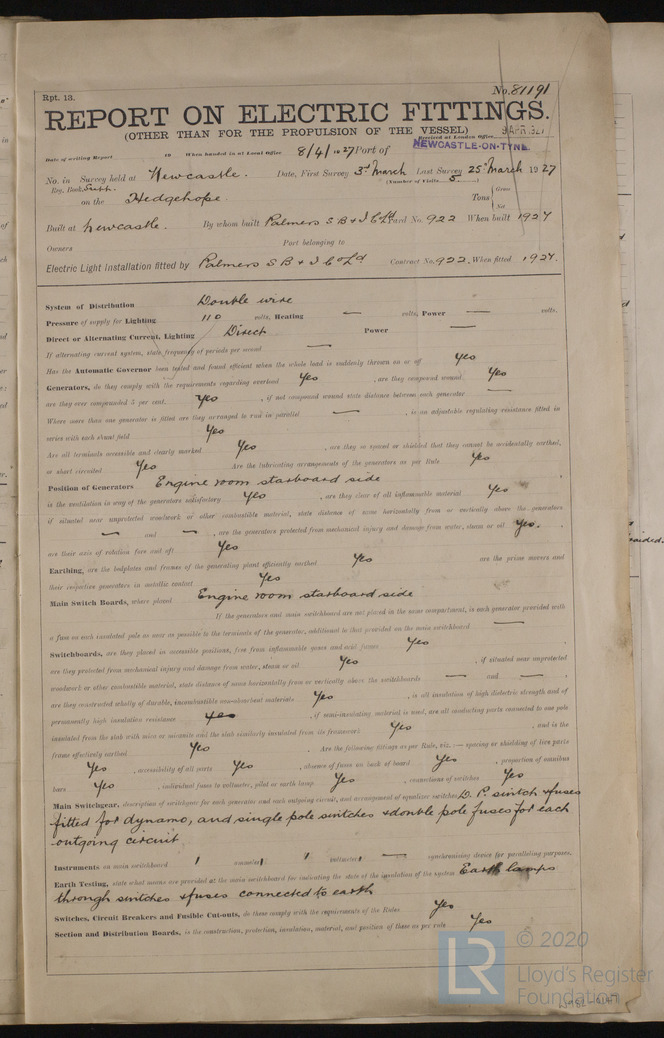 Rpt. 13.
No. 81191
REPORT ON ELECTRIC FITTINGS.
(OTHER THAN FOR THE PROPULSION OF THE VESSEL)
Received at London Office
Date of writing Report 19 When handed in at Local Office 8/4/1927 Port of NEWCASTLE-ON-TYNE
No. in Survey held at Newcastle. Date, First Survey 3rd March Last Survey 25th March 1927
Reg. Book. (Number of Visits 5.)
on the Hedgehope. Tons { Gross
Net
Built at Newcastle. By whom built Palmers S B & I Co Ld Yard No. 922 When built 1927
Owners Port belonging to
Electric Light Installation fitted by Palmers S B & I Co Ld Contract No. 922. When fitted 1927.
System of Distribution Double wire
Pressure of supply for Lighting 110 volts, Heating — volts, Power — volts.
Direct or Alternating Current, Lighting Direct Power —
If alternating current system, state frequency of periods per second —
Has the Automatic Governor been tested and found efficient when the whole load is suddenly thrown on or off Yes
Generators, do they comply with the requirements regarding overload Yes, are they compound wound Yes
are they over compounded 5 per cent. Yes, if not compound wound state distance between each generator —
Where more than one generator is fitted are they arranged to run in parallel —, is an adjustable regulating resistance fitted in
series with each shunt field Yes
Are all terminals accessible and clearly marked Yes, are they so spaced or shielded that they cannot be accidentally earthed,
or short circuited Yes Are the lubricating arrangements of the generators as per Rule Yes
Position of Generators Engine room starboard side
is the ventilation in way of the generators satisfactory Yes, are they clear of all inflammable material Yes
if situated near unprotected woodwork or other combustible material, state distance of same horizontally from or vertically above the generators
— and —, are the generators protected from mechanical injury and damage from water, steam or oil Yes.
are their axis of rotation fore and aft Yes
Earthing, are the bedplates and frames of the generating plant efficiently earthed Yes are the prime movers and
their respective generators in metallic contact Yes
Main Switch Boards, where placed Engine room starboard side
If the generators and main switchboard are not placed in the same compartment, is each generator provided with
a fuse on each insulated pole as near as possible to the terminals of the generator, additional to that provided on the main switchboard —
Switchboards, are they placed in accessible positions, free from inflammable gases and acid fumes Yes
are they protected from mechanical injury and damage from water, steam or oil Yes, if situated near unprotected
woodwork or other combustible material, state distance of same horizontally from or vertically above the switchboards — and —,
are they constructed wholly of durable, incombustible non-absorbent materials Yes, is all insulation of high dielectric strength and of
permanently high insulation resistance Yes, if semi-insulating material is used, are all conducting parts connected to one pole
insulated from the slab with mica or micanite and the slab similarly insulated from its framework Yes, and is the
frame effectively earthed Yes Are the following fittings as per Rule, viz. :— spacing or shielding of live parts
Yes, accessibility of all parts Yes, absence of fuses on back of board Yes, proportion of omnibus
bars Yes, individual fuses to voltmeter, pilot or earth lamp Yes, connections of switches Yes
Main Switchgear, description of switchgear for each generator and each outgoing circuit, and arrangement of equalizer switches D. P. switch & fuses
fitted for dynamo, and single pole switches & double pole fuses for each
outgoing circuit
Instruments on main switchboard 1 ammeters 1 voltmeters — synchronising device for paralleling purposes.
Earth Testing, state what means are provided at the main switchboard for indicating the state of the insulation of the system Earth lamps
through switches & fuses connected to earth
Switches, Circuit Breakers and Fusible Cut-outs, do these comply with the requirements of the Rules Yes
Section and Distribution Boards, is the construction, protection, insulation, material, and position of these as per rule Yes
LR
© 2020
Lloyd's Register
Foundation